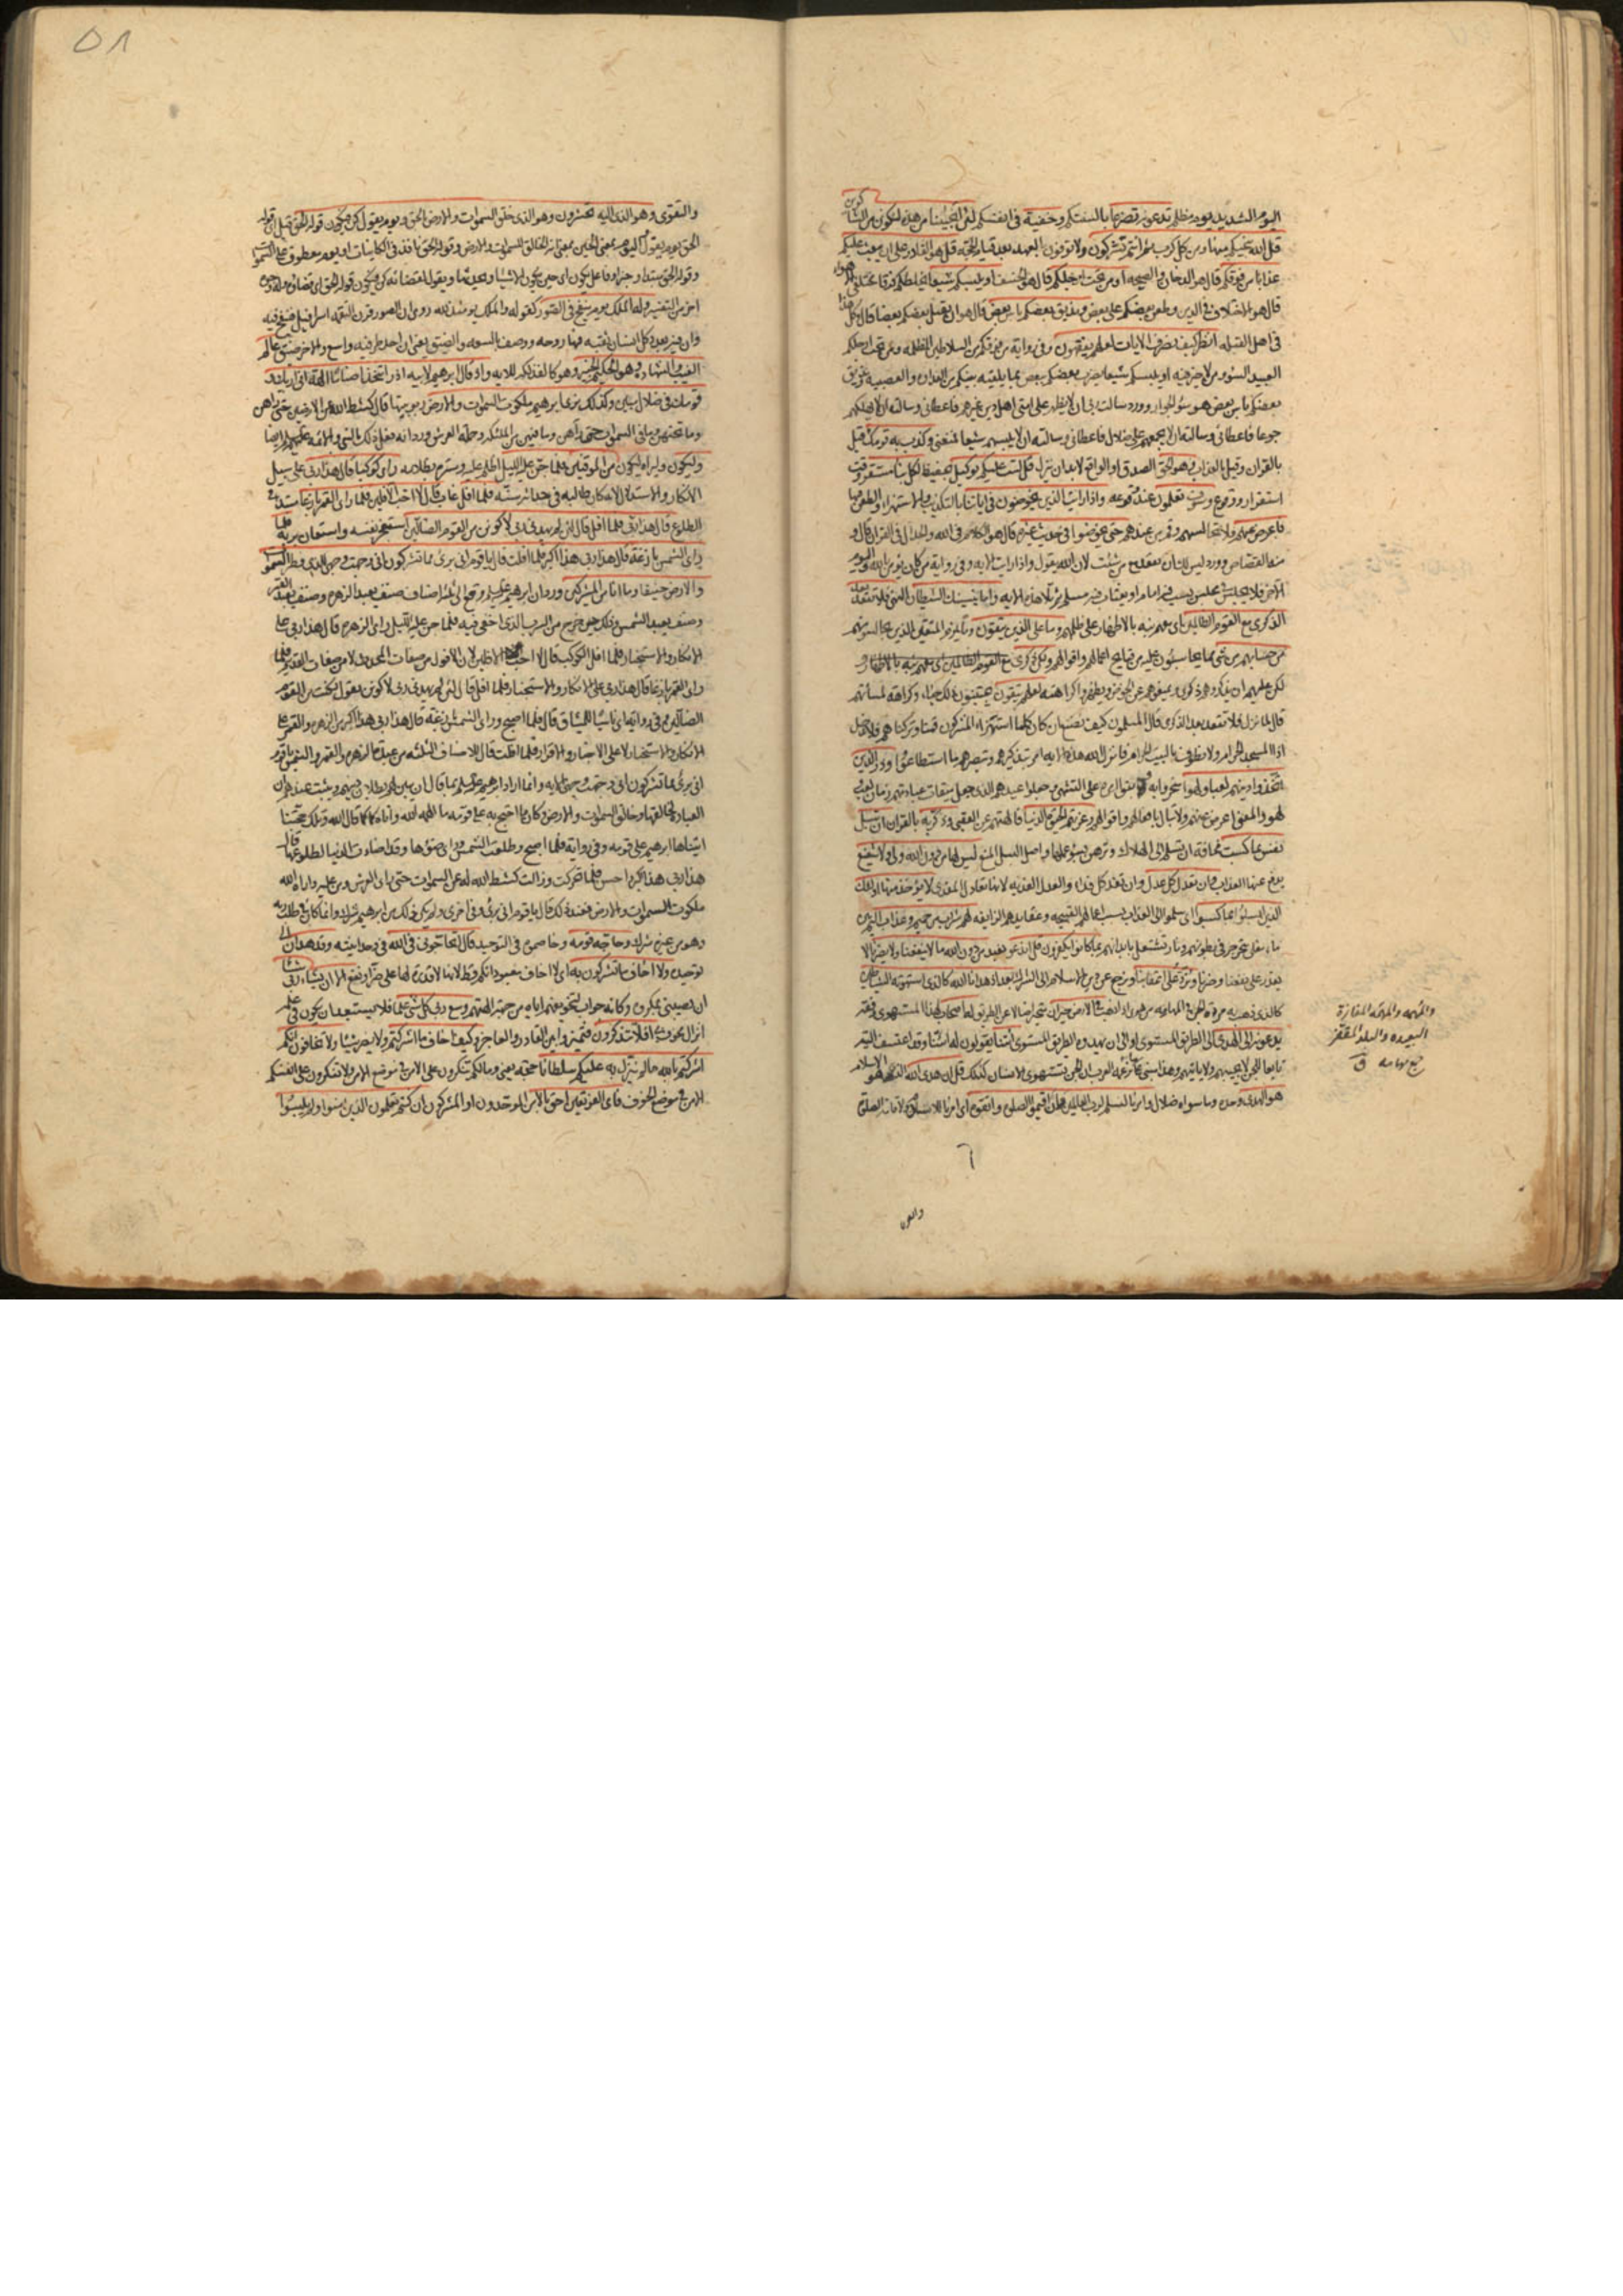 اليوم الشديد يوم مظلم تدعونه تضرعا بالسنتكم وخفية في انفسكم لئن انجيتنا من هذه لنكونن من الشاكرين
قل الله ينجيكم منها ومن كل كرب ثم انتم تشركون ولا توفون العهد بعد قيام الحجة قل هو القادر على ان يبعث عليكم
عذابا من فوقكم قال هو الدخان والصيحة او من تحت ارجلكم قال هو الخسف او يلبسكم شيعا يخلطكم فرقا مختلفي الاهواء
قال هو الاختلاف في الدين وطعن بعضكم على بعض ويذيق بعضكم باس بعض قال هو ان يقتل بعضكم بعضا قال وكل هذا
في اهل القبلة انظر كيف نصرف الايات لعلهم يفقهون وفي رواية من فوقكم من السلاطين الظلمة ومن تحت ارجلكم
العبيد السوء ومن لا خير فيه او يلبسكم شيعا يضرب بعضكم ببعض بما يلقيه بينكم من العداوة والعصبية ويذيق
بعضكم باس بعض هو سوء الجوار وورد سالت ربي ان لا يظهر على امتي اهل دين غيرهم فاعطاني وسالته ان لا يهلكهم
جوعا فاعطاني وسالته ان لا يجمعهم على ضلال فاعطاني وسالته ان لا يلبسهم شيعا فمنعني وكذب به قومك قيل
بالقران وقيل بالعذاب وهو الحق الصدق او الواقع لا بد ان ينزل قل لست عليكم بوكيل بحفيظ لكل نبا مستقر وقت
استقرار ووقوع وسوف تعلمون عند وقوعه واذا رايت الذين يخوضون في اياتنا بالتكذيب والاستهزاء والطعن فيها
فاعرض عنهم ولا تجالسهم وقم من عندهم حتى يخوضوا في حديث غيره قال هو الكلام في الله والجدال في القران قال و
منه القصاص وورد ليس لك ان تقعد مع من شئت لان الله يقول واذا رايت الاية وفي رواية من كان يؤمن بالله واليوم
الاخر فلا يجلس في مجلس يسب فيه امام او يغتاب فيه مسلم ثم تلا هذه الاية واما ينسينك الشيطان النهي فلا تقعد بعد
الذكرى مع القوم الظالمين اي معهم نبه بالاظهار على ظلمهم وما على الذين يتقون وما يلزم المتقين الذين يجالسونهم
من حسابهم من شيء مما يحاسبون عليه من قبايح اعمالهم واقوالهم ولكن ذكرى مع القوم الظالمين اي معهم نبه بالاظهار و
لكن عليهم ان يذكروهم ذكرى ويمنعوهم عن الخوض ويظهروا كراهته لعلهم يتقون يجتنبون ذلك حياء وكراهة لمسائتهم
قال لما نزل فلا تقعد بعد الذكرى قال المسلمون كيف نصنع ان كان كلما استهزاء المشركون قمنا وتركناهم فلا ندخل
اذا المسجد الحرام ولا نطوف بالبيت الحرام فانزل الله هذه الاية امر بتذكيرهم وتبصيرهم ما استطاعوا وذر الذين
اتخذوا دينهم لعبا ولهوا
لهو والمعنى اعرض عنهم ولا تبال بافعالهم واقوالهم وغرتهم الحيوة الدنيا فالهتهم عن العقبى وذكر به بالقران ان تبسل
نفس بما كسبت مخافة ان تسلم الى الهلاك وترهن بسوء عملها واصل البسل المنع ليس لها من دون الله ولي ولا شفيع
يدفع عنها العذاب وان تعدل كل عدل وان تفد كل فداء والعدل الفدية لانها تعادل المفدى لا يؤخذ منها اولئك
الذين ابسلوا بما كسبوا اي سلموا الى العذاب بسبب اعمالهم القبيحة وعقايدهم الزايغة لهم شراب من حميم وعذاب اليم من
ماء يغلي يتجرجر في بطونهم ونار تشتعل بابدانهم بما كانوا يكفرون قل اندعو نعبد من دون الله ما لا ينفعنا ولا يضرنا لا
يقدر على نفعنا وضرنا ونرد على اعقابنا ونرجع عن دين الاسلام الى الشرك بعد اذ هدانا الله كالذي استهوته الشياطين
كالذي ذهبت به مردة الجن في المهامه من هوى اذا ذهب في الارض حيران متحيرا ضالا عن الطريق له اصحاب لهذا المستهوى رفقة
يدعونه الى الهدى الى الطريق المستوي او الى ان يهدوه الطريق المستوي ائتنا يقولون له ائتنا وقد اعتسف التيه
تابعا للجن لا يجيبهم ولا ياتيهم وهذا مبني على ما تزعمه العرب ان الجن تستهوي الانسان كذلك قل ان هدى الله الذي هو الاسلام
هو الهدى وحده وما سواه ضلال وامرنا لنسلم لرب العالمين وان اقيموا الصلوة واتقوه اي امرنا للاسلام ولاقامة الصلوة
والمهمه والمهمهة المفازة
البعيدة والبلد المقفر
ج مهامه ق
٥٨
والتقوى وهو الذي اليه تحشرون وهو الذي خلق السموات والارض بالحق ويوم يقول كن فيكون قوله الحق قيل اي قوله
الحق يوم يقول
وقوله الحق مبتدا وخبر او فاعل يكون اي حين يكون الاشياء
اخر من التفسير وله الملك يوم ينفخ في الصور كقوله والملك يومئذ لله روي ان الصور قرن التقمه اسرافيل فينفخ فيه
وان فيه بعدد كل انسان ثقبة فيها روحه ووصف بالسعة والضيق يعني ان احد طرفيه واسع والاخر ضيق عالم
الغيب والشهادة وهو الحكيم الخبير وهو كالفذلكة للاية واذ قال ابرهيم لابيه ازر اتتخذ اصناما الهة اني اريك و
قومك في ضلال مبين وكذلك نري ابرهيم ملكوت السموات والارض ربوبيتها قال كشط الله عن الارضين حتى راهن
وما تحتهن وما في السموات حتى راهن وما فيهن من الملئكة وحملة العرش وورد انه فعل ذلك بالنبي والائمة عليهم السلم ايضا
وليكون وليراه ليكون من الموقنين فلما جن عليه الليل اظلم عليه وستره بظلامه راى كوكبا قال هذا ربي على سبيل
الانكار والاستدلال
الطلوع قال هذا ربي فلما افل قال لئن لم يهدني ربي لاكونن من القوم الضالين استعجز نفسه واستعان بربه فلما
راى الشمس بازغة قال هذا ربي هذا اكبر فلما افلت قال يا قوم اني بريء مما تشركون اني وجهت وجهي للذي فطر السموات
والارض حنيفا وما انا من المشركين ورد ان ابرهيم عليه السلم وقع الى ثلثة اصناف صنف يعبد الزهرة وصنف يعبد القمر
وصنف يعبد الشمس وذلك حين خرج من السرب الذي اخفي فيه فلما جن عليه الليل راى الزهرة قال هذا ربي على
الانكار والاستخبار فلما افل الكوكب قال لا احب الافلين لان الافول من صفات المحدث لا من صفات القديم فلما
راى القمر بازغا قال هذا ربي على الانكار والاستخبار فلما افل قال لئن لم يهدني ربي لاكونن يقول لكنت من القوم
الضالين وفي رواية اي ناسيا للميثاق قال فلما اصبح وراى الشمس بازغة قال هذا ربي هذا اكبر من الزهرة والقمر على
الانكار والاستخبار لا على الاخبار والاقرار فلما افلت قال للاصناف الثلثة من عبدة الزهرة والقمر والشمس يا قوم
اني بريء مما تشركون اني وجهت وجهي الاية وانما اراد ابرهيم عليه السلم بما قال ان يبين لهم بطلان دينهم ويثبت عندهم ان
العبادة لخالقها وخالق السموات والارض وكان ما احتج به على قومه ما الهمه الله واتاه كما قال الله وتلك حجتنا
اتيناها ابرهيم على قومه وفي رواية فلما اصبح وطلعت الشمس وراى ضوءها وقد اضاءت الدنيا لطلوعها قال
هذا ربي هذا اكبر واحسن فلما تحركت وزالت كشط الله له عن السموات حتى راى العرش ومن عليه واراه الله
ملكوت السموات والارض فعند ذلك قال يا قوم اني بريء وفي اخرى ولم يكن ذلك من ابرهيم شرك وانما كان في طلب ربه
وهو من غيره شرك وحاجه قومه وخاصموه في التوحيد قال اتحاجوني في الله في وحدانيته وقد هدان الى
توحيده ولا اخاف ما تشركون به اي لا اخاف معبوداتكم قط لانها لا قدرة لها على ضر او نفع الا ان يشاء ربي شيئا
ان يصيبني بمكروه وكانه جواب لتخويفهم اياه من جهة الهتهم وسع ربي كل شيء علما فلا يستبعد ان يكون في علمه
انزال مخوف بي افلا تتذكرون فتميزوا بين القادر والعاجز وكيف اخاف ما اشركتم ولا يضر شيئا ولا تخافون انكم
اشركتم بالله ما لم ينزل به عليكم سلطانا حجة يعني وما لكم تنكرون على الامن في موضع الامن ولا تنكرون على انفسكم
الامن في موضع الخوف فاي الفريقين احق بالامن الموحدون او المشركون ان كنتم تعلمون الذين امنوا ولم يلبسوا